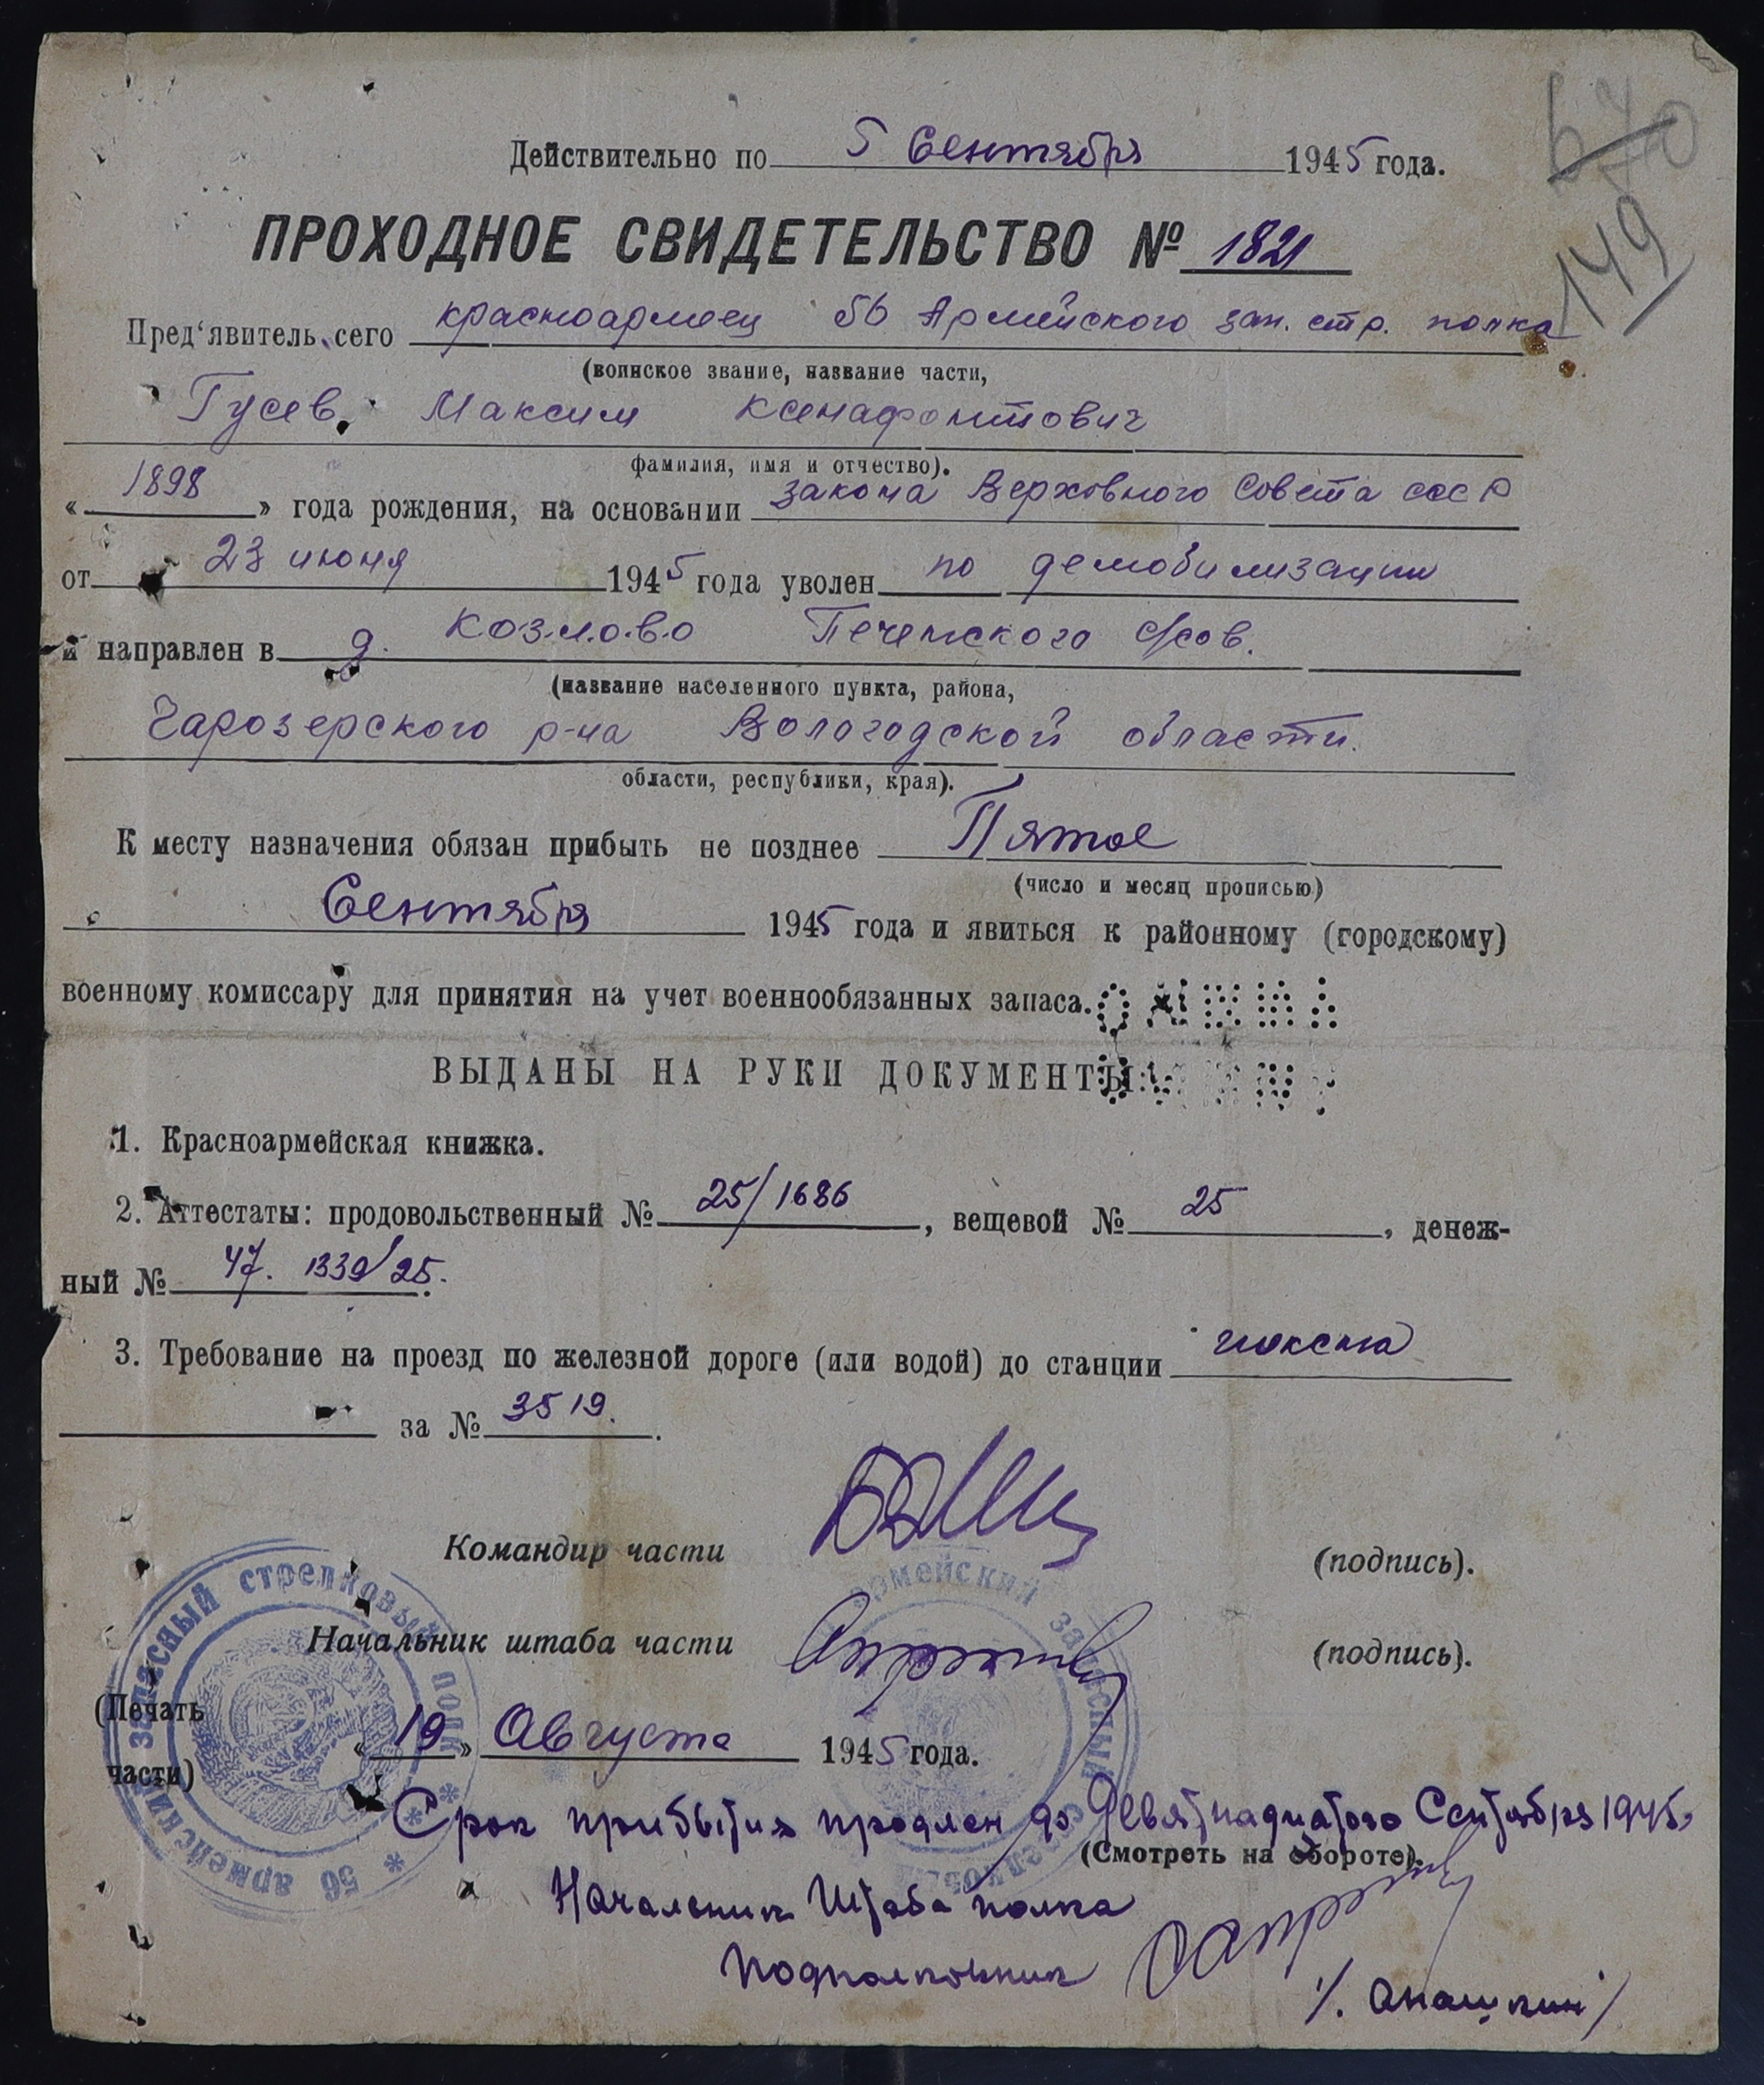 670
149
Действительно по 5 Сентября 1945 года.
ПРОХОДНОЕ СВИДЕТЕЛЬСТВО № 1821
Пред‘явитель сего красноармеец 56 Армейского зап. стр. полка
(воинское звание, название части,
Гусев, Максим Ксенафонтович
фамилия, имя и отчество).
« 1898 » года рождения, на основании закона Верховного Совета СССР
от 23 июня 1945 года уволен по демобилизации
и направлен в д. Козлово Печенгского с/сов.
(название населенного пункта, района,
Чарозерского р-на Вологодской области.
области, республики, края).
К месту назначения обязан прибыть не позднее Пятое
(число и месяц прописью)
Сентября 1945 года и явиться к районному (городскому)
военному комиссару для принятия на учет военнообязанных запаса.
ВЫДАНЫ НА РУКИ ДОКУМЕНТЫ:
1. Красноармейская книжка.
2. Аттестаты: продовольственный № 25/1686, вещевой № 25, денеж-
ный № 47. 1339/25.
3. Требование на проезд по железной дороге (или водой) до станции
за № 3519.
Командир части (подпись).
Начальник штаба части (подпись).
(Печать
части)
« 19 » Августа 1945 года.
56 армейский запасный стрелковый полк
армейский запасный стрелковый
Срок прибытия продлен до Девятнадцатого Сентября 1945г
(Смотреть на обороте).
Начальник Штаба полка
Подполковник
/. Анашкин /